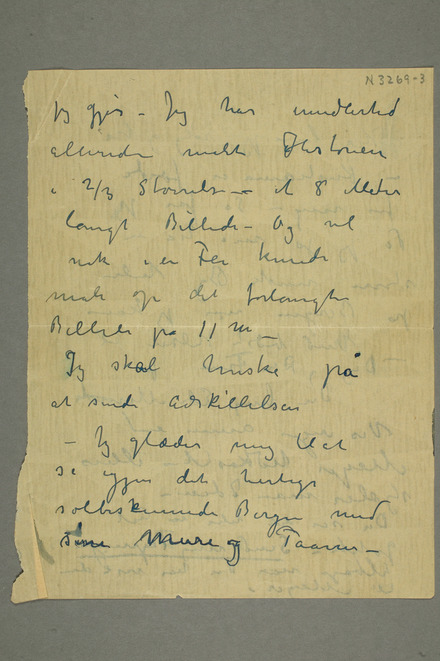 N 3269-3
Jeg gjør – Jeg har imidlertid
allerede malt Historien
i 2/3 Størrelse – et 8 Meter
langt Billede – Og vil
nok i en Fei kunde
male op det forlangte
Billede på 11 m –
Jeg skal huske på
at sende Adskillelsen
– Jeg glæder mig til at
se igjen det herlige
solbeskinnede Bergen med
sine Mure og Taarne –